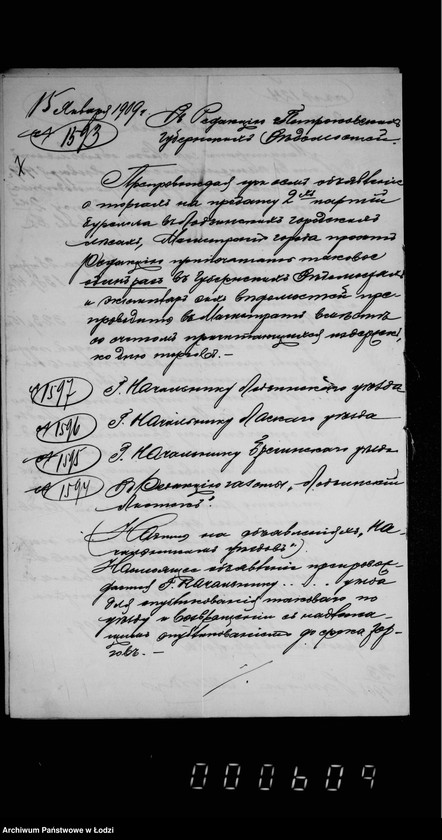 15 Января 1909 г.
№ 1593
Въ Редакцію Петроковскихъ
Губернскихъ Вѣдомостей.
Препровождая при семъ объявленіе
о торгахъ на продажу 2-хъ партій
бурелома въ Лодзинскихъ городскихъ
лѣсахъ, Магистратъ города проситъ
Редакцію припечатать таковое
въ Губернскихъ Вѣдомостяхъ
и экземпляръ сихъ вѣдомостей пре-
проводить въ Магистратъ вмѣстѣ
со счетомъ причитающихся издержекъ,
ко дню торговъ. —
№ 1597 Г. Начальнику Лодзинскаго уѣзда
№ 1596 Г. Начальнику Ласкаго уѣзда
№ 1595 Г. Начальнику Брезинскаго уѣзда
№ 1594 Въ Редакцію газеты „Лодзинскій
Листокъ".
на объявленіяхъ, На-
чальникамъ уѣздовъ")
Настоящее объявленіе препровож-
дается Г. Начальнику . . . . уѣзда
для опубликованія таковаго по
уѣзду и возвращенія съ надписью
до срока тор-
говъ. —
000609
Archiwum Państwowe w Łodzi